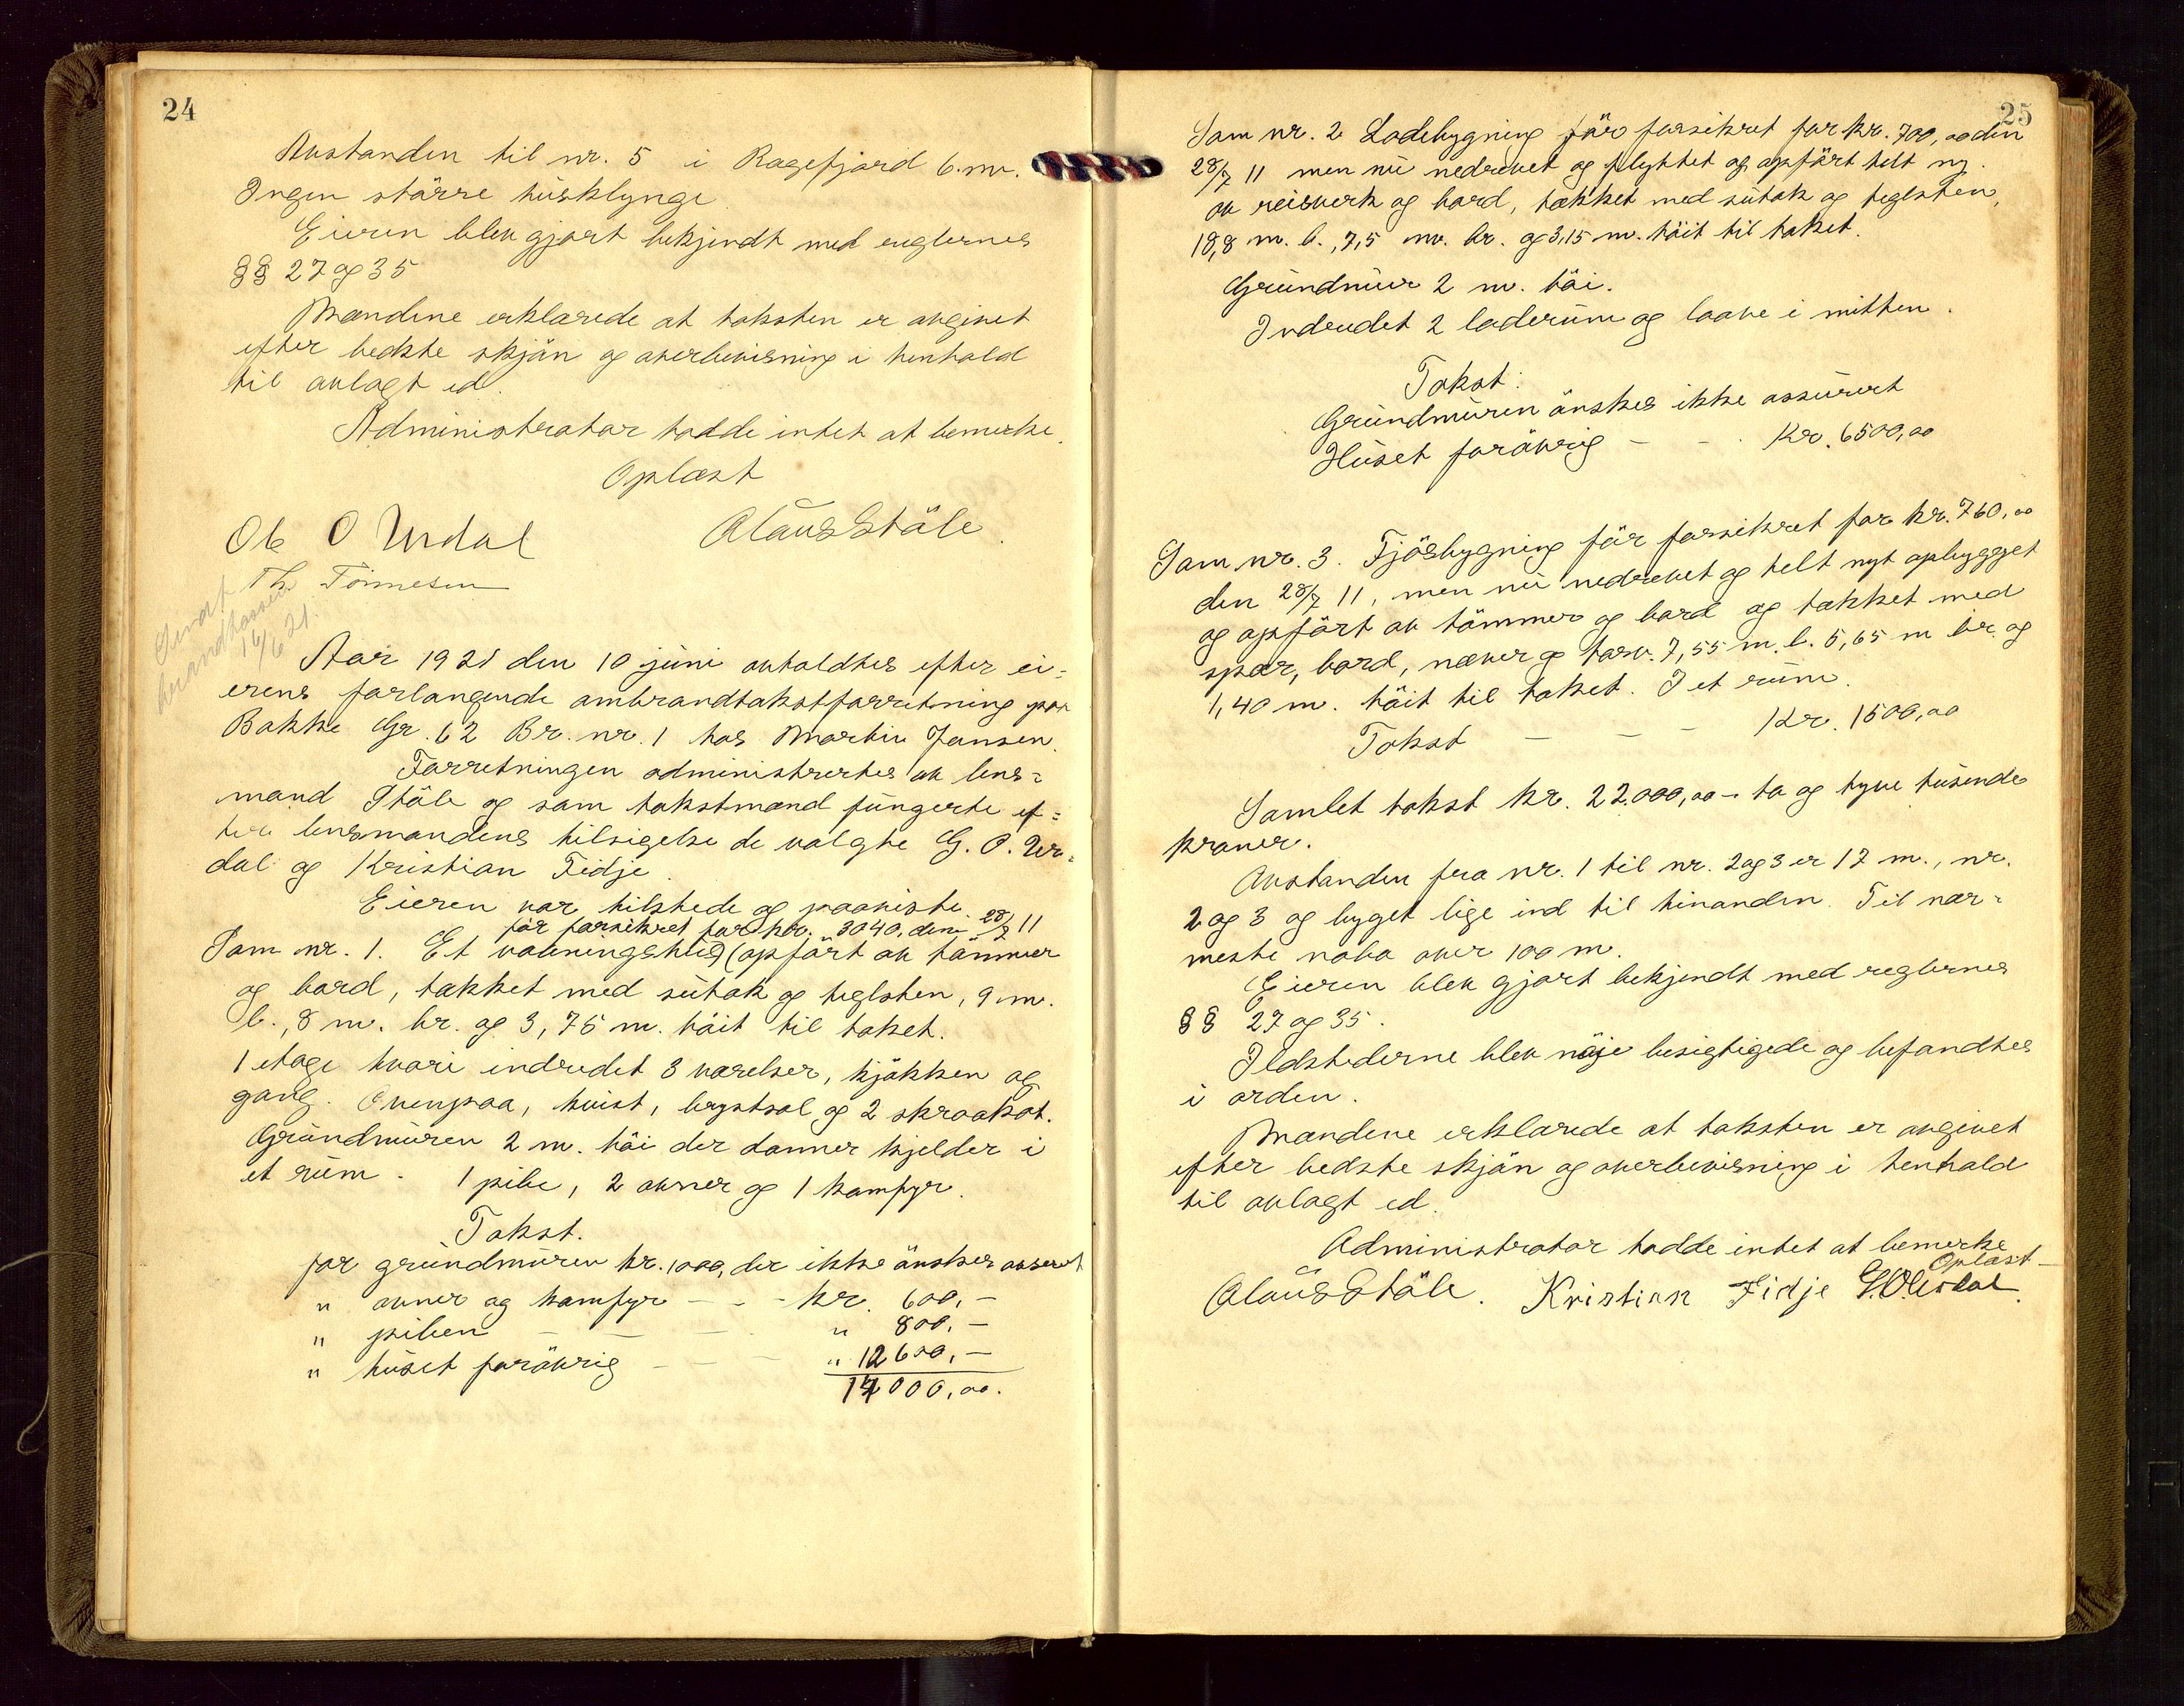 24
Avstanden til nr. 5 i Ragefjord 6. m.
Ingen större husklynge
Eieren blev gjort bekjendt med reglernes
§§ 27 og 35
Mændene erklærede at taksten er avgivet
efter bedste skjön og overbevisning i henhold
til avlagt ed.
Administrator hadde intet at bemerke.
Oplæst
Ole O Urdal Olaus Ståle.
Th. Tönnesen
Sendt
brandkassen
14/6 21.
Aar 1921 den 10 juni avholdtes efter ei-
erens forlangende ombrandtakstforretning paa
Bakke Gr. 62 Br. nr. 1 hos Martin Jansen.
Forretningen administrertes av lens-
mand Ståle og som takstmænd fungerte ef-
ter lensmandens tilsigelse de valgte G. O. Ur-
dal og Kristian Fidje.
Eieren var tilstede og paaviste.
för forsikret for kr. 3040, den 28/7 11
Som nr. 1. Et vaaningshus (opfört av tömmer
og bord, tækket med sutak og teglsten, 9 m.
l., 8 m. br. og 3,75 m. höit til taket.
1 etage hvori indredet 3 værelser, kjökken og
gang. Ovenpaa, kvist, brystsal og 2 skraakot.
Grundmuren 2 m. höi der danner kjelder i
et rum. 1 pibe, 2 ovner og 1 komfyr.
Takst.
for grundmuren kr. 1000, der ikke önskes assurert
" ovner og komfyr - - - kr. 600,-
" piben - - - " 800,-
" huset forövrig - - - " 12600,-
14000,00.
25
Som nr. 2 Ladebygning för forsikret for kr. 700,00 den
28/7 11 men nu nedrevet og flyttet og opfört helt ny.
av reisverk og bord, tækket med sutak og teglsten,
18,8 m. l., 7,5 m. br. og 3,15 m. höit til taket.
Grundmur 2 m. höi.
Indredet 2 laderum og laave i mitten.
Takst:
Grundmuren önskes ikke assurert
Huset forövrig - - . Kr. 6500,00
Som nr. 3. Fjösbygning för forsikret for kr. 760,00
den 28/7 11, men nu nedrevet og helt nyt opbygget
og opfört av tömmer og bord og tækket med
sper, bord, næver og torv. 7,55 m. l. 5,65 m br. og
1,40 m. höit til taket. I et rum.
Takst - - - Kr. 1500,00
Samlet takst kr. 22.000,00 - to og tyve tusende
kroner.
Avstanden fra nr. 1 til nr. 2 og 3 er 17 m., nr.
2 og 3 og bygget lige ind til hinanden. Til nær-
meste nabo over 100 m.
Eieren blev gjort bekjendt med reglernes
§§ 27 og 35.
Ildstederne blev nöje besigtigede og befandtes
i orden.
Mændene erklærede at taksten er avgivet
efter bedste skjön og overbevisning i henhold
til avlagt ed.
Administrator hadde intet at bemerke
Oplæst-
Olaus Ståle. Kristian Fidje G. O. Urdal.